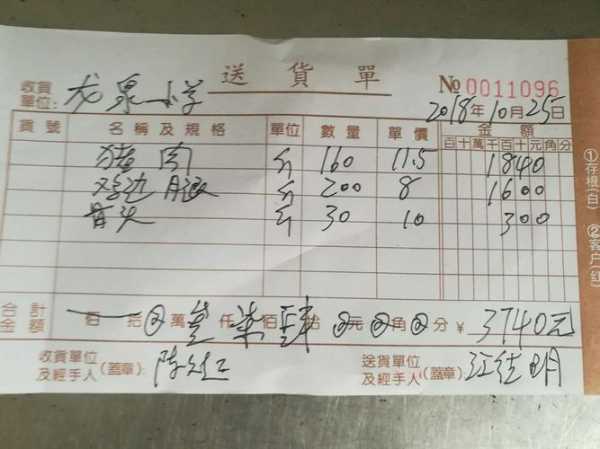 送貨單
№ 0011096
收貨單位: 龙泉小学
2018年10月25日
貨號 名稱及規格 單位 數量 單價 金額
百十萬千百十元角分
猪肉 斤 160 11.5 1840
边腿 斤 200 8 1600
骨头 斤 30 10 300
合計金額 佰 拾 萬 叁仟柒佰肆拾 元 角 分 ¥ 3740元
收貨單位及經手人(蓋章):
送貨單位及經手人(蓋章):
①存根(白) ②客户(红)